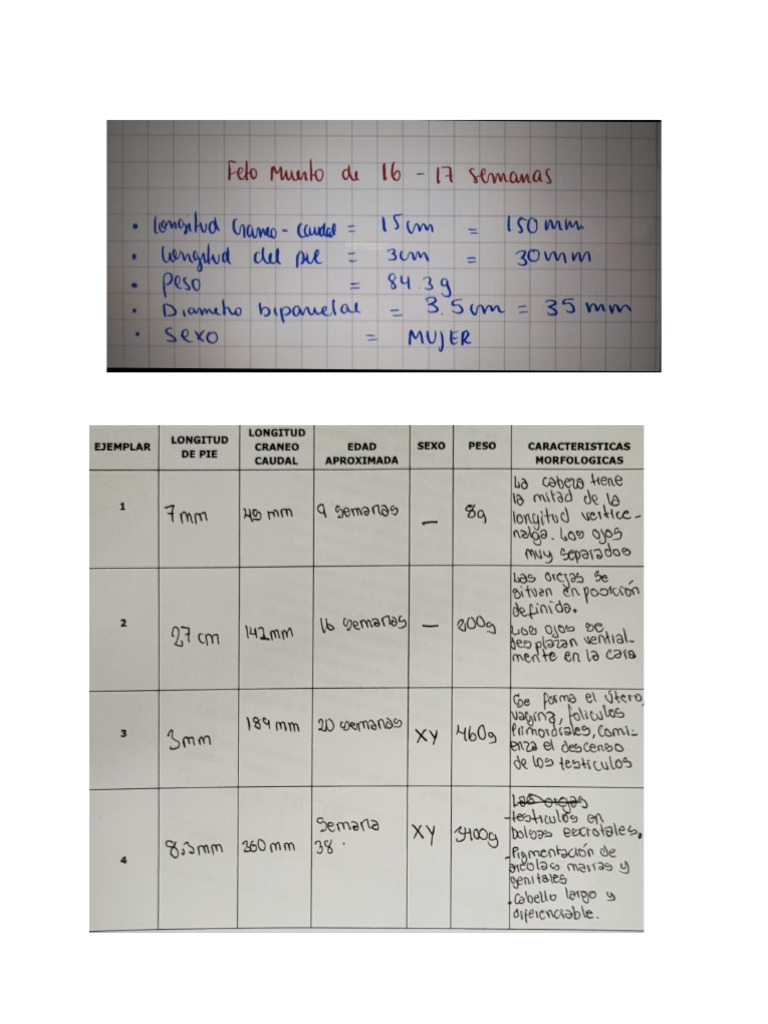 Feto Muerto de 16 - 17 semanas
• Longitud Craneo - Caudal = 15cm = 150mm
• Longitud del pie = 3cm = 30mm
• Peso = 84.3g
• Diametro biparietal = 3.5cm = 35mm
• Sexo = MUJER
EJEMPLAR LONGITUD DE PIE LONGITUD CRANEO CAUDAL EDAD APROXIMADA SEXO PESO CARACTERISTICAS MORFOLOGICAS
1 7mm 48 mm 9 semanas — 8g
La cabeza tiene
la mitad de la
longitud vertice-
nalga. Los ojos
muy separados
2 27 cm 142mm 16 semanas — 200g
Las orejas se
situan en posición
definida.
Los ojos se
desplazan ventral-
mente en la cara
3 3mm 189 mm 20 semanas XY 460g
Se forma el útero,
vagina, foliculos
primordiales, comi-
enza el descenso
de los testiculos
4 8.3mm 360 mm Semana 38. XY 3400g
Las orejas
-testiculos en
bolsas escrotales,
-Pigmentación de
areolas marras y
genitales
-Cabello largo y
diferenciable.